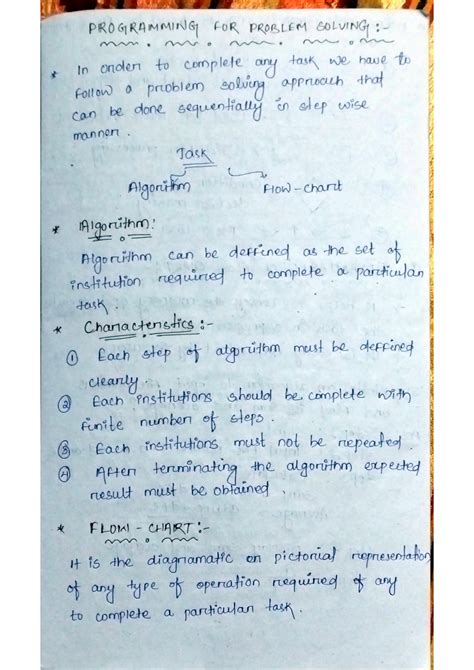 PROGRAMMING FOR PROBLEM SOLVING :-
* In order to complete any task we have to
follow a problem solving approach that
can be done sequentially in step wise
mannor.
Task
Algorithm Flow-chart
* Algorithm:
Algorithm can be deffined as the set of
institution required to complete a particular
task.
* Characteristics :-
① Each step of algorithm must be deffined
clearly.
② Each institutions should be complete with
finite number of steps.
③ Each institutions must not be repeated.
④ After terminating the algorithm expected
result must be obtained.
* FLOW - CHART :-
It is the diagramatic or pictorial representation
of any type of operation required of any
to complete a particular task.